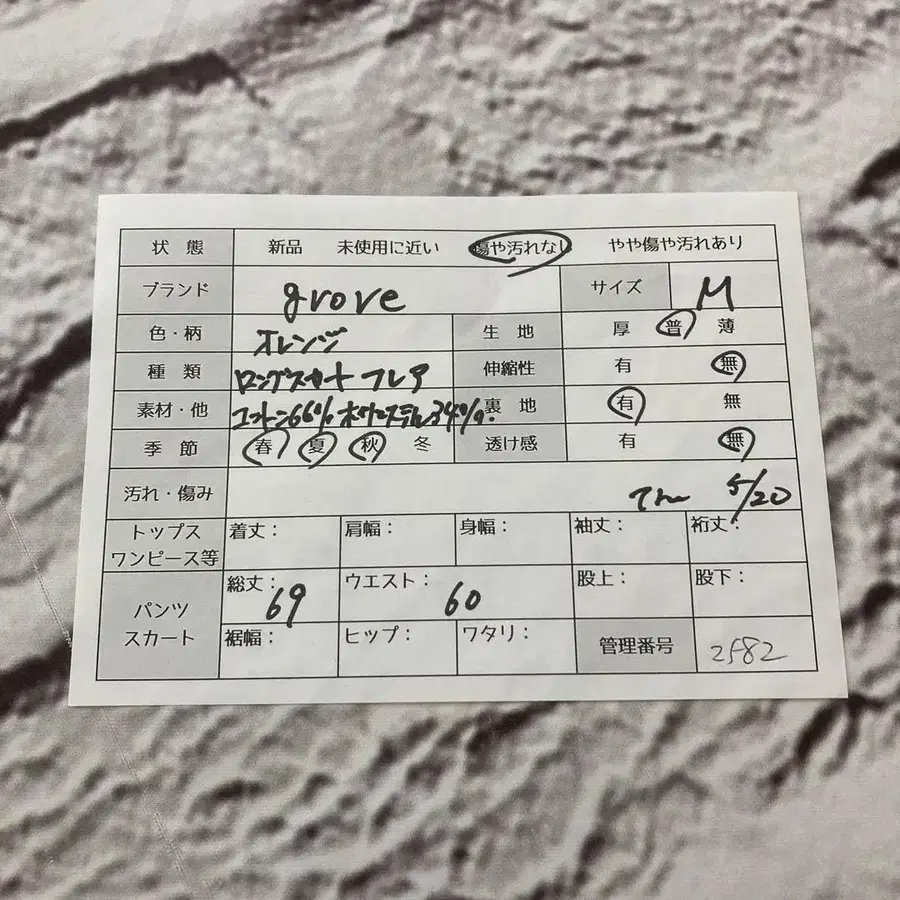 状態 新品 未使用に近い 傷や汚れなし やや傷や汚れあり
ブランド grove サイズ M
色・柄 オレンジ 生地 厚 普 薄
種類 ロングスカート フレア 伸縮性 有 無
素材・他 コットン66% ポリエステル34%. 裏地 有 無
季節 春 夏 秋 冬 透け感 有 無
汚れ・傷み 5/20
トップス ワンピース等 着丈: 肩幅: 身幅: 袖丈: 裄丈:
パンツ スカート 総丈: 69 ウエスト: 60 股上: 股下:
裾幅: ヒップ: ワタリ: 管理番号 2582